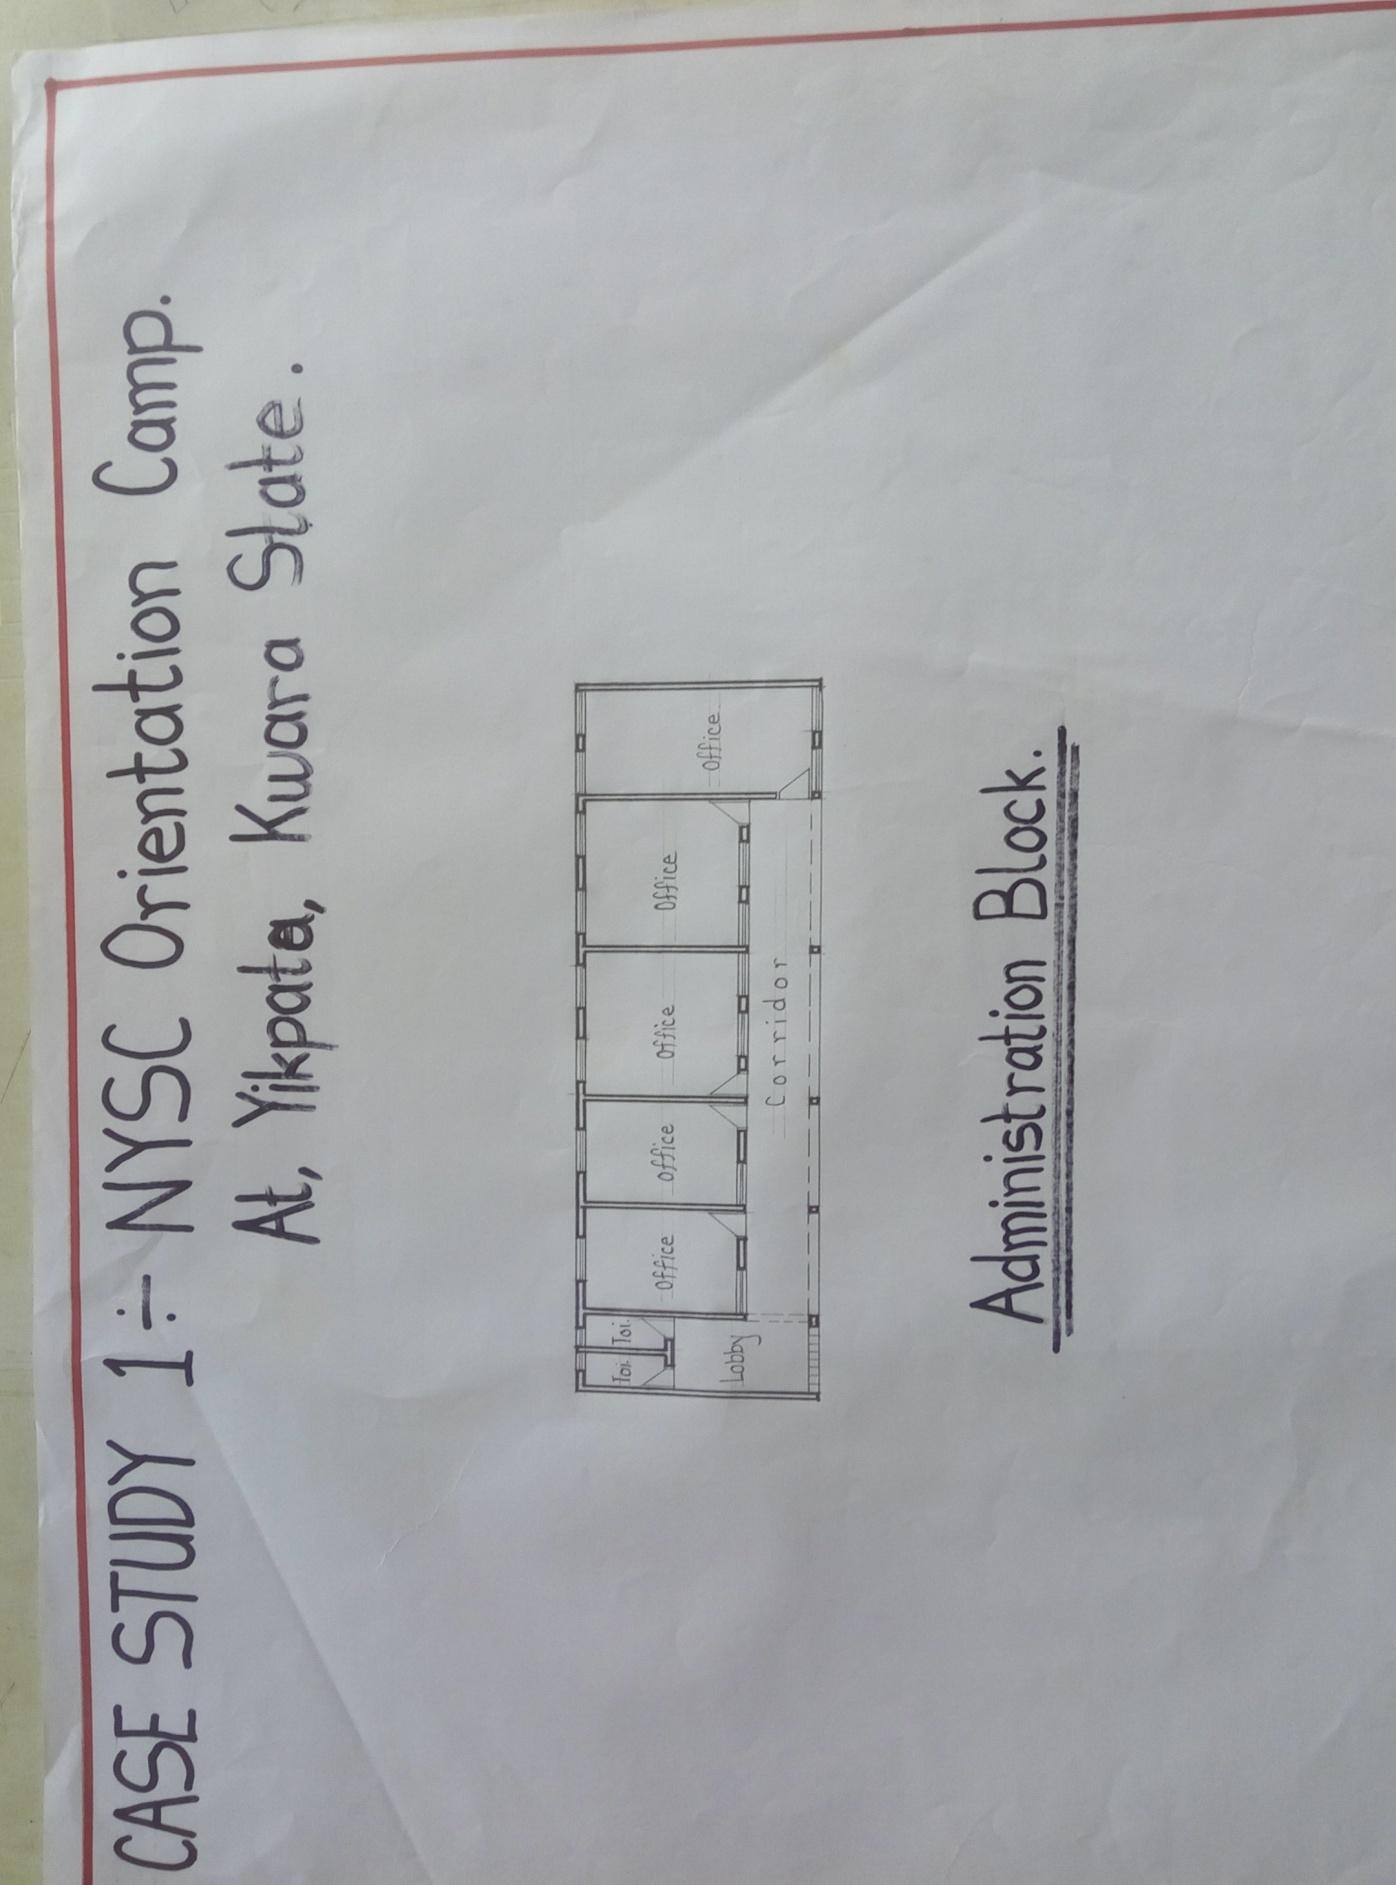 CASE STUDY 1÷ NYSC Orientation Camp.
At, Yikpata, Kwara State.
Toi.
Toi.
Lobby
Office
Office
Office
Office
Office
Corridor
Administration Block.